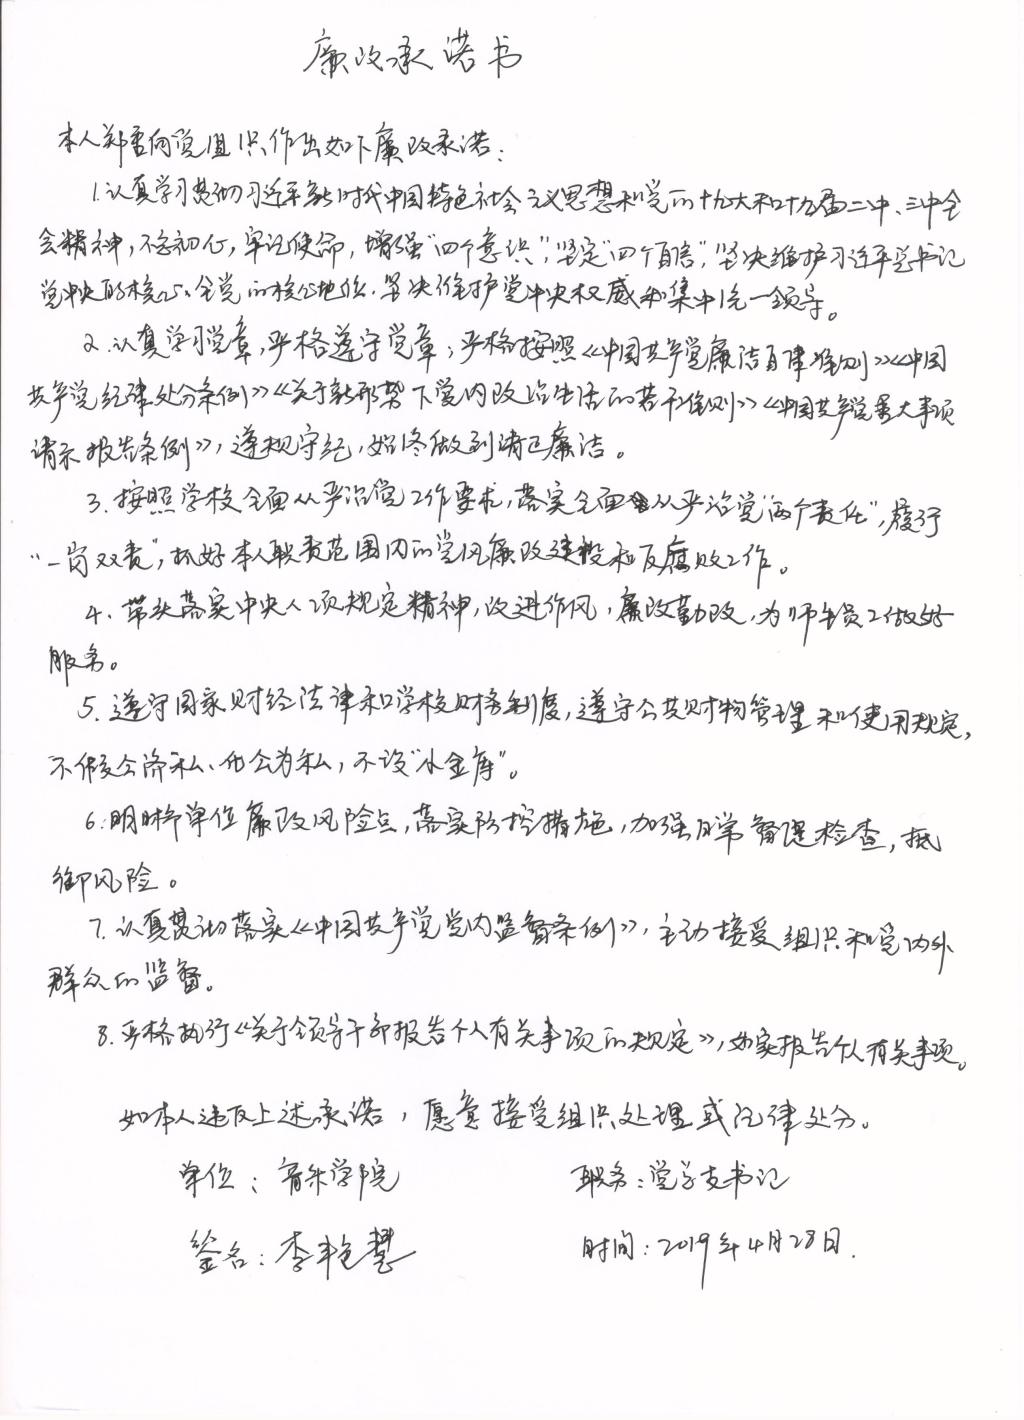 廉政承诺书
本人郑重向党组织作出如下廉政承诺：
1.认真学习贯彻习近平新时代中国特色社会主义思想和党的十九大和十九届二中、三中全
会精神，不忘初心，牢记使命，增强“四个意识”，坚定“四个自信”，坚决维护习近平总书记
党中央的核心、全党的核心地位，坚决维护党中央权威和集中统一领导。
2.认真学习党章，严格遵守党章；严格按照《中国共产党廉洁自律准则》《中国
共产党纪律处分条例》《关于新形势下党内政治生活的若干准则》《中国共产党重大事项
请示报告条例》，遵规守纪，始终做到清正廉洁。
3.按照学校全面从严治党工作要求，落实全面从严治党“两个责任”，履行
“一岗双责”，抓好本人职责范围内的党风廉政建设和反腐败工作。
4.带头落实中央八项规定精神，改进作风，廉政勤政，为师生员工做好
服务。
5.遵守国家财经法律和学校财务制度，遵守公共财物管理和使用规定，
不假公济私、化公为私，不设“小金库”。
6.明晰单位廉政风险点，落实防控措施，加强日常督促检查，抵
御风险。
7.认真贯彻落实《中国共产党党内监督条例》，主动接受组织和党内外
群众的监督。
8.严格执行《关于领导干部报告个人有关事项的规定》，如实报告个人有关事项。
如本人违反上述承诺，愿意接受组织处理或纪律处分。
单位：音乐学院 职务：党总支书记
签名：李艳慧 时间：2019年4月28日.